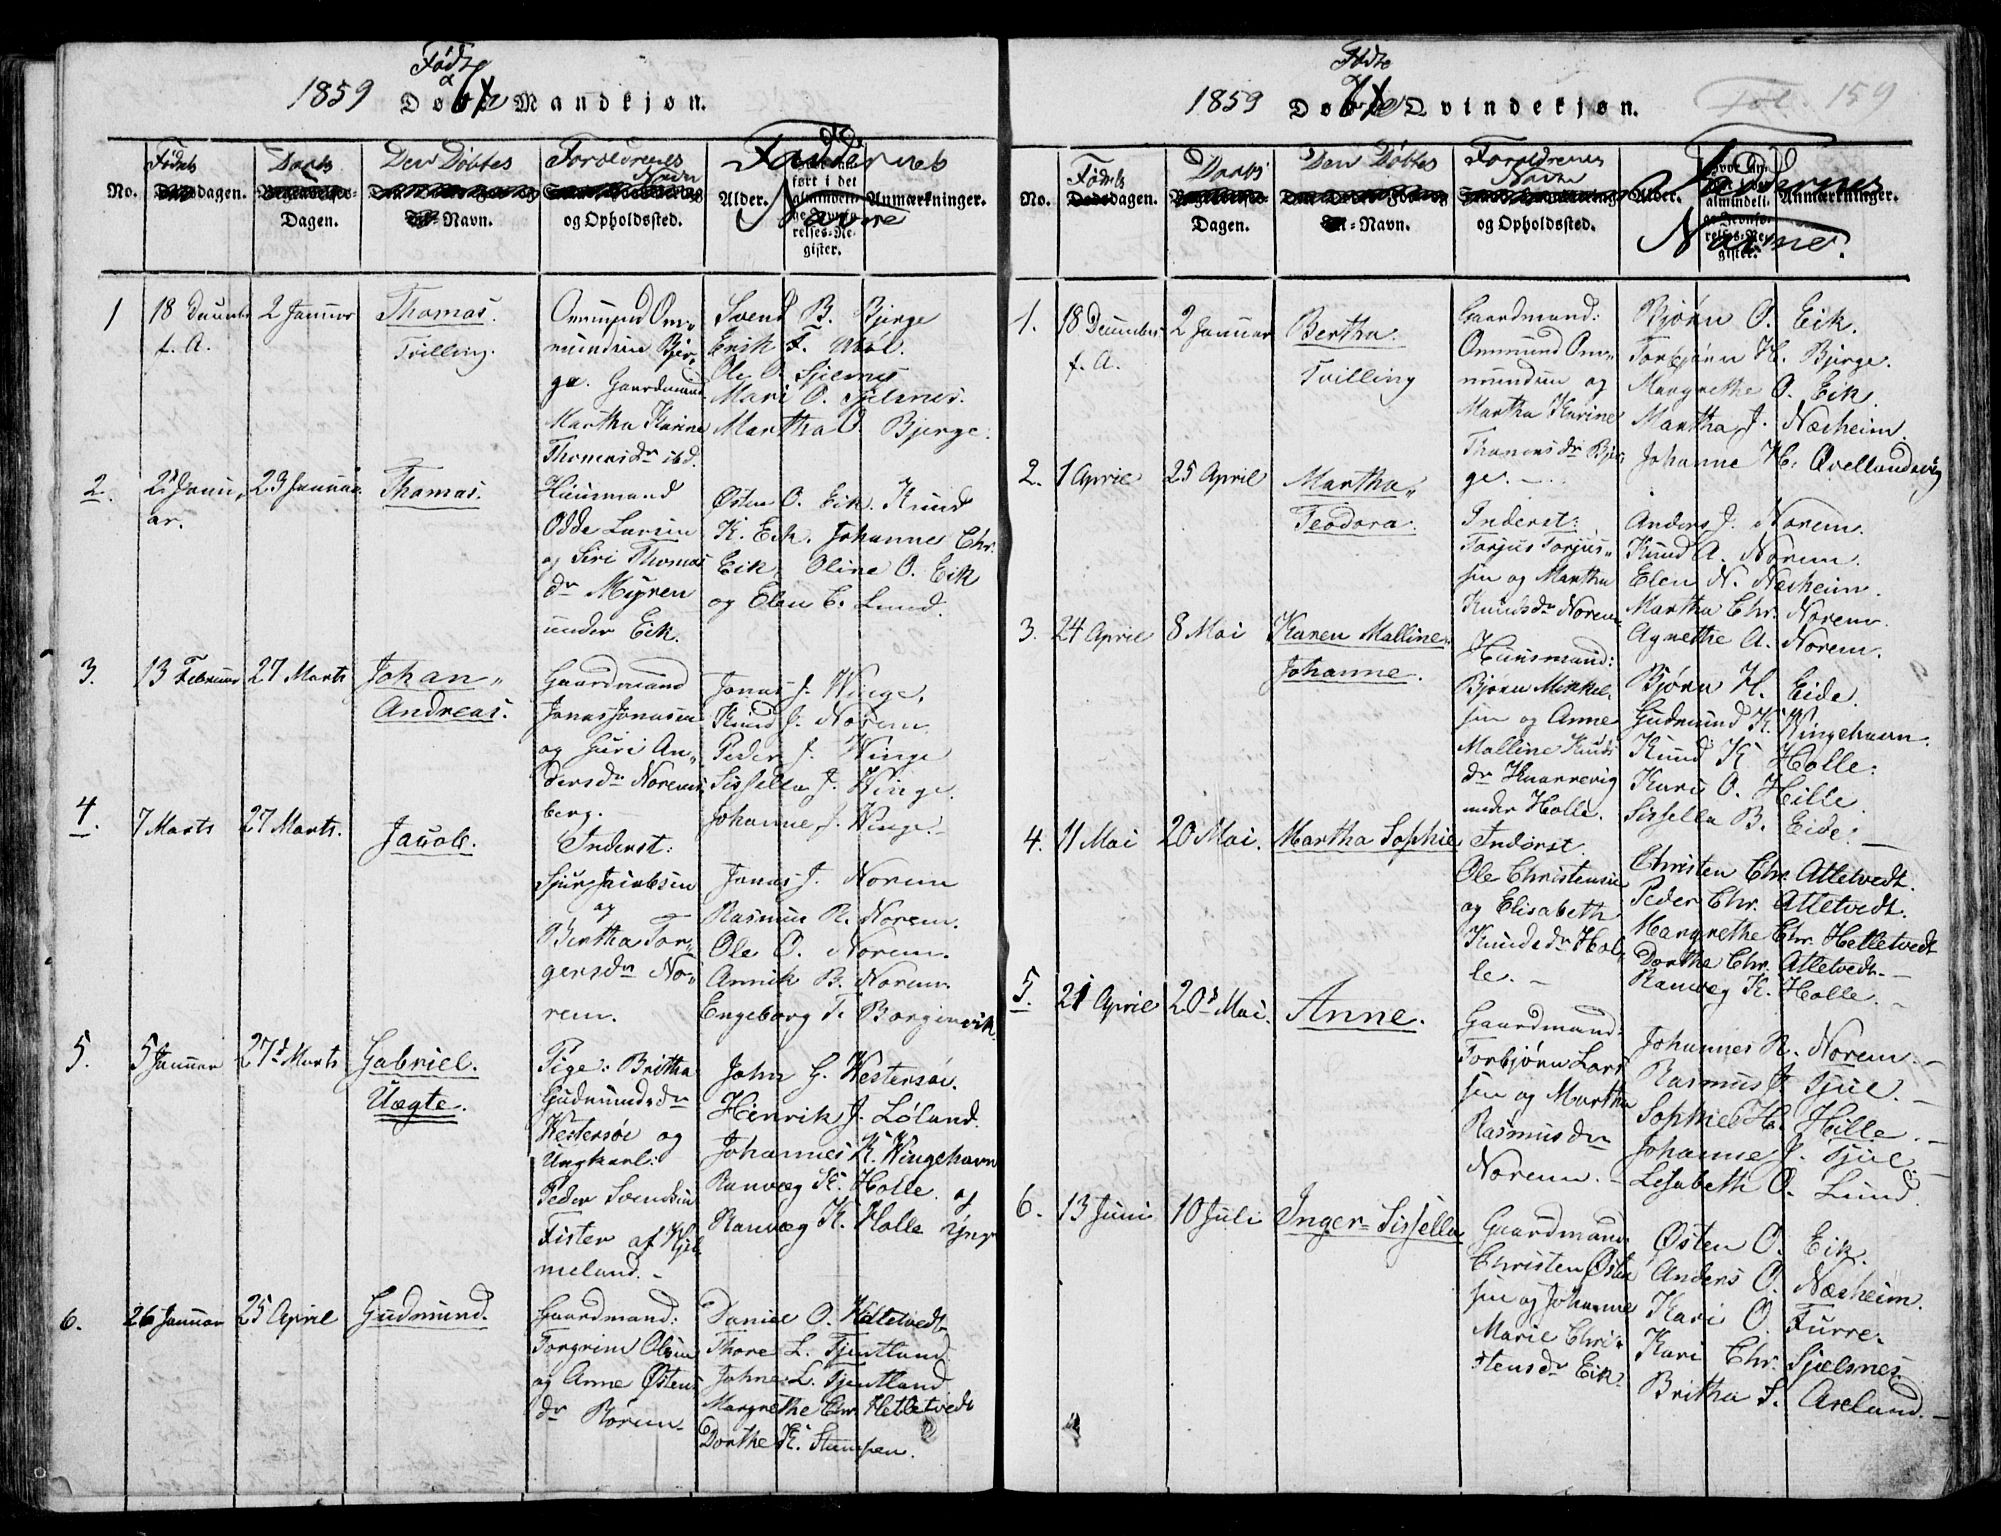 1859
Fødte
Døbte Mandkjøn.
No.
Fødsels
dagen.
Daabs
Dagen.
Den Døbtes
Navn.
Forældrenes
Navn
og Opholdssted.
Faddernes
Navne
Alder.
ført i det
almindeli-
ge Jevnfø-
relses-Re-
gister.
Anmærkninger.
1
18 Decembr
f. A.
2 Januar
Thomas.
Tvilling.
Ommund Om-
mundsen Bjer-
ge. Gaardmand
Martha Karine
Thomasdr ibd.
Svend B. Bjerge
Erik F.
Ole O. Sjelsnes
Mari O. Sjelsnes.
Martha O. Bjerge.
2.
Janu-
ar.
23 Januar
Thomas.
Huusmand
Odde Larsen
og Siri Thomas
dr Myren
under Eik.
Østen O. Eik. Knud
K. Eik. Johannes Chr.
Eik, Oline O. Eik
og Elen E. Lund.
3.
13 Februar
27 Marts
Johan-
Andreas.
Gaardmand
Jonas Jonasen
og Guri An-
dersdr Norems
berg.
Jonas J. Winge,
Knud J. Norem
Peder J. Winge
Sissella J. Winge.
Johanne J. Winge.
4.
7 Marts
27 Marts.
Jacob.
Inderst:
Sjur Jacobsen
og
Bertha Tor-
gersdr No-
rem.
Jonas J. Norem
Rasmus R. Norem.
Ole O. Norem.
Annik B. Norem.
Engeborg T. Borgenvik
5.
5 Januar
27d Marts
Gabriel.
Uægte.
Pige: Britha
Gudmundsdr
Westersøe og
Ungkarl:
Peder Svendsen
Fister af Hjel-
meland.
John G. Westersøe.
Henrik J. Løland.
Johannes K. Wingehavn
Ranveg K. Holle. og
Ranveg K. Holle yngr
6.
26 Januar
25 April
Gudmund.
Gaardmand:
Torgrim Olsen
og Anne Østens
dr Norem.
Daniel O. Hetletvedt
Thore L. Tjentland
Johne L. Tjentland
Margrethe Chr. Hetletvedt
Dorthe K. Stumpen.
1859
Fødte
Døbte Qvindekjøn.
Fol. 159
No.
Fødsels
dagen.
Daabs
Dagen.
Den Døbtes
Navn.
Forældrenes
Navne
og Opholdssted.
Faddernes
Navne.
Alder.
almindeli-
ge Jevnfø-
relses-Re-
gister.
Anmærkninger.
1.
18 December
f. A.
2 Januar
Bertha.
Tvilling
Gaardmand:
Ommund Om-
mundsen og
Martha Karine
Thomasdr Bjer-
ge.
Bjørn O. Eik.
Torbjørn H. Bjerge.
Margrethe O. Eik.
Martha J. Næsheim.
Johanne H. Qvellandsvig
2.
1 April
25 April
Martha-
Teodora.
Inderst:
Torjus Torjus-
sen og Martha
Knudsdr Norem
Anders J. Norem.
Knud A. Norem.
Elen N. Næsheim.
Martha Chr. Norem.
Agnethe A. Norem.
3.
24 April
8 Mai
Karen Malline
Johanne.
Huusmand:
Bjørn Mikkel-
sen og Anne
Malline Knuds
dr Knarrevig
under Holle.
Bjørn H. Eide.
Gudmund K. Wingehavn.
Knud K Holle:
Kari O. Hille.
Sissella B. Eide.
4.
11 Mai
20 Mai.
Martha Sophie
Inderst.
Ole Christensen
og Elisabeth
Knudsdr Hol-
le.
Christen Chr. Atletvedt.
Peder Chr. Atletvedt.
Margrethe Chr. Hetletvedt
Dorthe Chr. Atletvedt.
Ranveg K. Holle.
5.
21 April
20d Mai.
Anne.
Gaardmand:
Torbjørn Lar-
sen og Martha
Rasmusdr
Norem.
Johannes R. Norem.
Rasmus J. Tjul.
Sophie H. Hille.
Johanne J. Tjul.
Lisabeth O. Lund.
6.
13 Juni
10 Juli
Inger-Sissella
Gaardmand:
Christen Østen
sen og Johanne
Marie Chri-
stensdr Eik.
Østen O. Eik.
Anders O. Næsheim.
Kari O. Furre.
Kari Chr. Sjælsnes.
Britha S. Aseland.